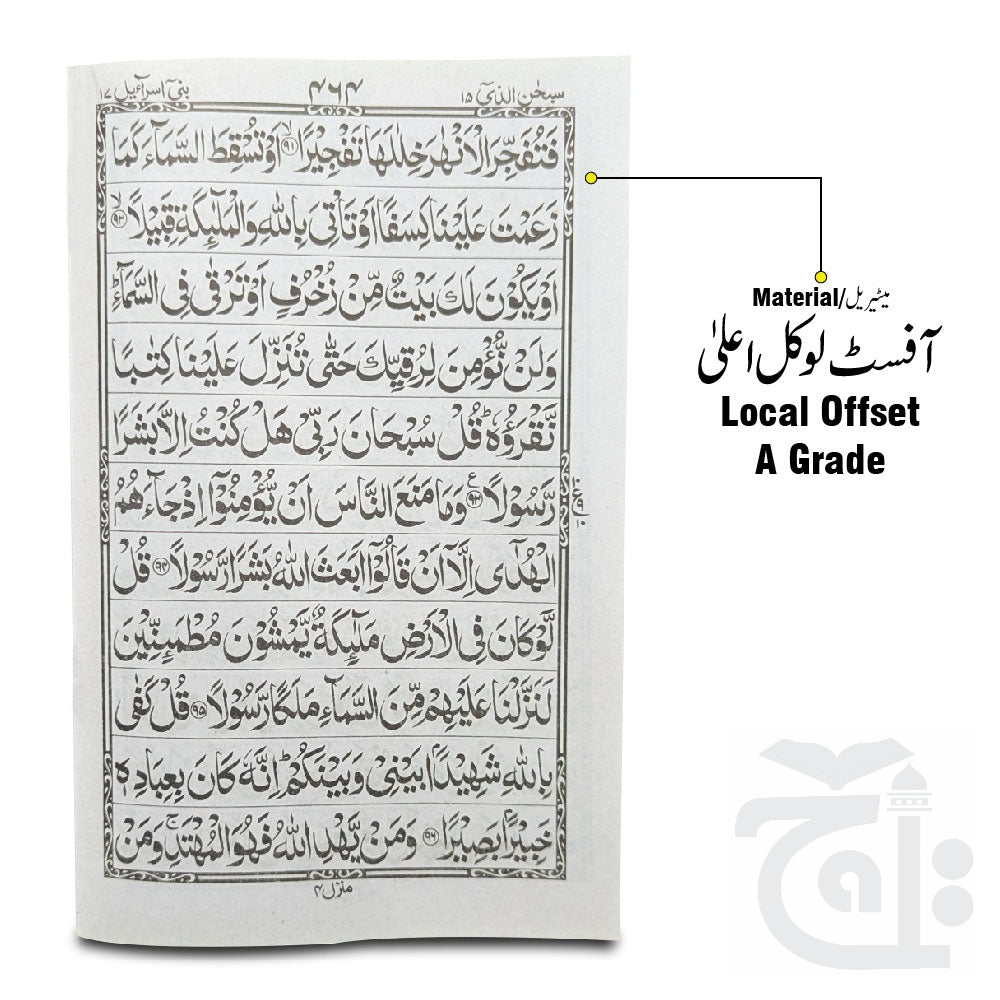 سبحٰن الذیٓ ۱۵
۴۶۴
بنیٓ اسرآءیل ۱۷
فَتُفَجِّرَ الْاَنْهٰرَ خِلٰلَهَا تَفْجِیْرًا ۙ﴿۹۱﴾ اَوْ تُسْقِطَ السَّمَآءَ كَمَا
زَعَمْتَ عَلَیْنَا كِسَفًا اَوْ تَاْتِیَ بِاللّٰهِ وَالْمَلٰٓىِٕكَةِ قَبِیْلًا ۙ﴿۹۲﴾
اَوْ یَكُوْنَ لَكَ بَیْتٌ مِّنْ زُخْرُفٍ اَوْ تَرْقٰی فِی السَّمَآءِ ؕ
وَلَنْ نُّؤْمِنَ لِرُقِیِّكَ حَتّٰی تُنَزِّلَ عَلَیْنَا كِتٰبًا
نَّقْرَؤُهٗ ؕ قُلْ سُبْحَانَ رَبِّیْ هَلْ كُنْتُ اِلَّا بَشَرًا
رَّسُوْلًا ﴿۹۳﴾ ع وَمَا مَنَعَ النَّاسَ اَنْ یُّؤْمِنُوْۤا اِذْ جَآءَهُمُ
الْهُدٰۤی اِلَّاۤ اَنْ قَالُوْۤا اَبَعَثَ اللّٰهُ بَشَرًا رَّسُوْلًا ﴿۹۴﴾ قُلْ
لَّوْ كَانَ فِی الْاَرْضِ مَلٰٓىِٕكَةٌ یَّمْشُوْنَ مُطْمَىِٕنِّیْنَ
لَنَزَّلْنَا عَلَیْهِمْ مِّنَ السَّمَآءِ مَلَكًا رَّسُوْلًا ﴿۹۵﴾ قُلْ كَفٰی
بِاللّٰهِ شَهِیْدًۢا بَیْنِیْ وَبَیْنَكُمْ ؕ اِنَّهٗ كَانَ بِعِبَادِهٖ
خَبِیْرًۢا بَصِیْرًا ﴿۹۶﴾ وَمَنْ یَّهْدِ اللّٰهُ فَهُوَ الْمُهْتَدِ ۚ وَمَنْ
منزل ۴
Material/میٹیریل
آفسٹ لوکل اعلیٰ
Local Offset
A Grade
تاج